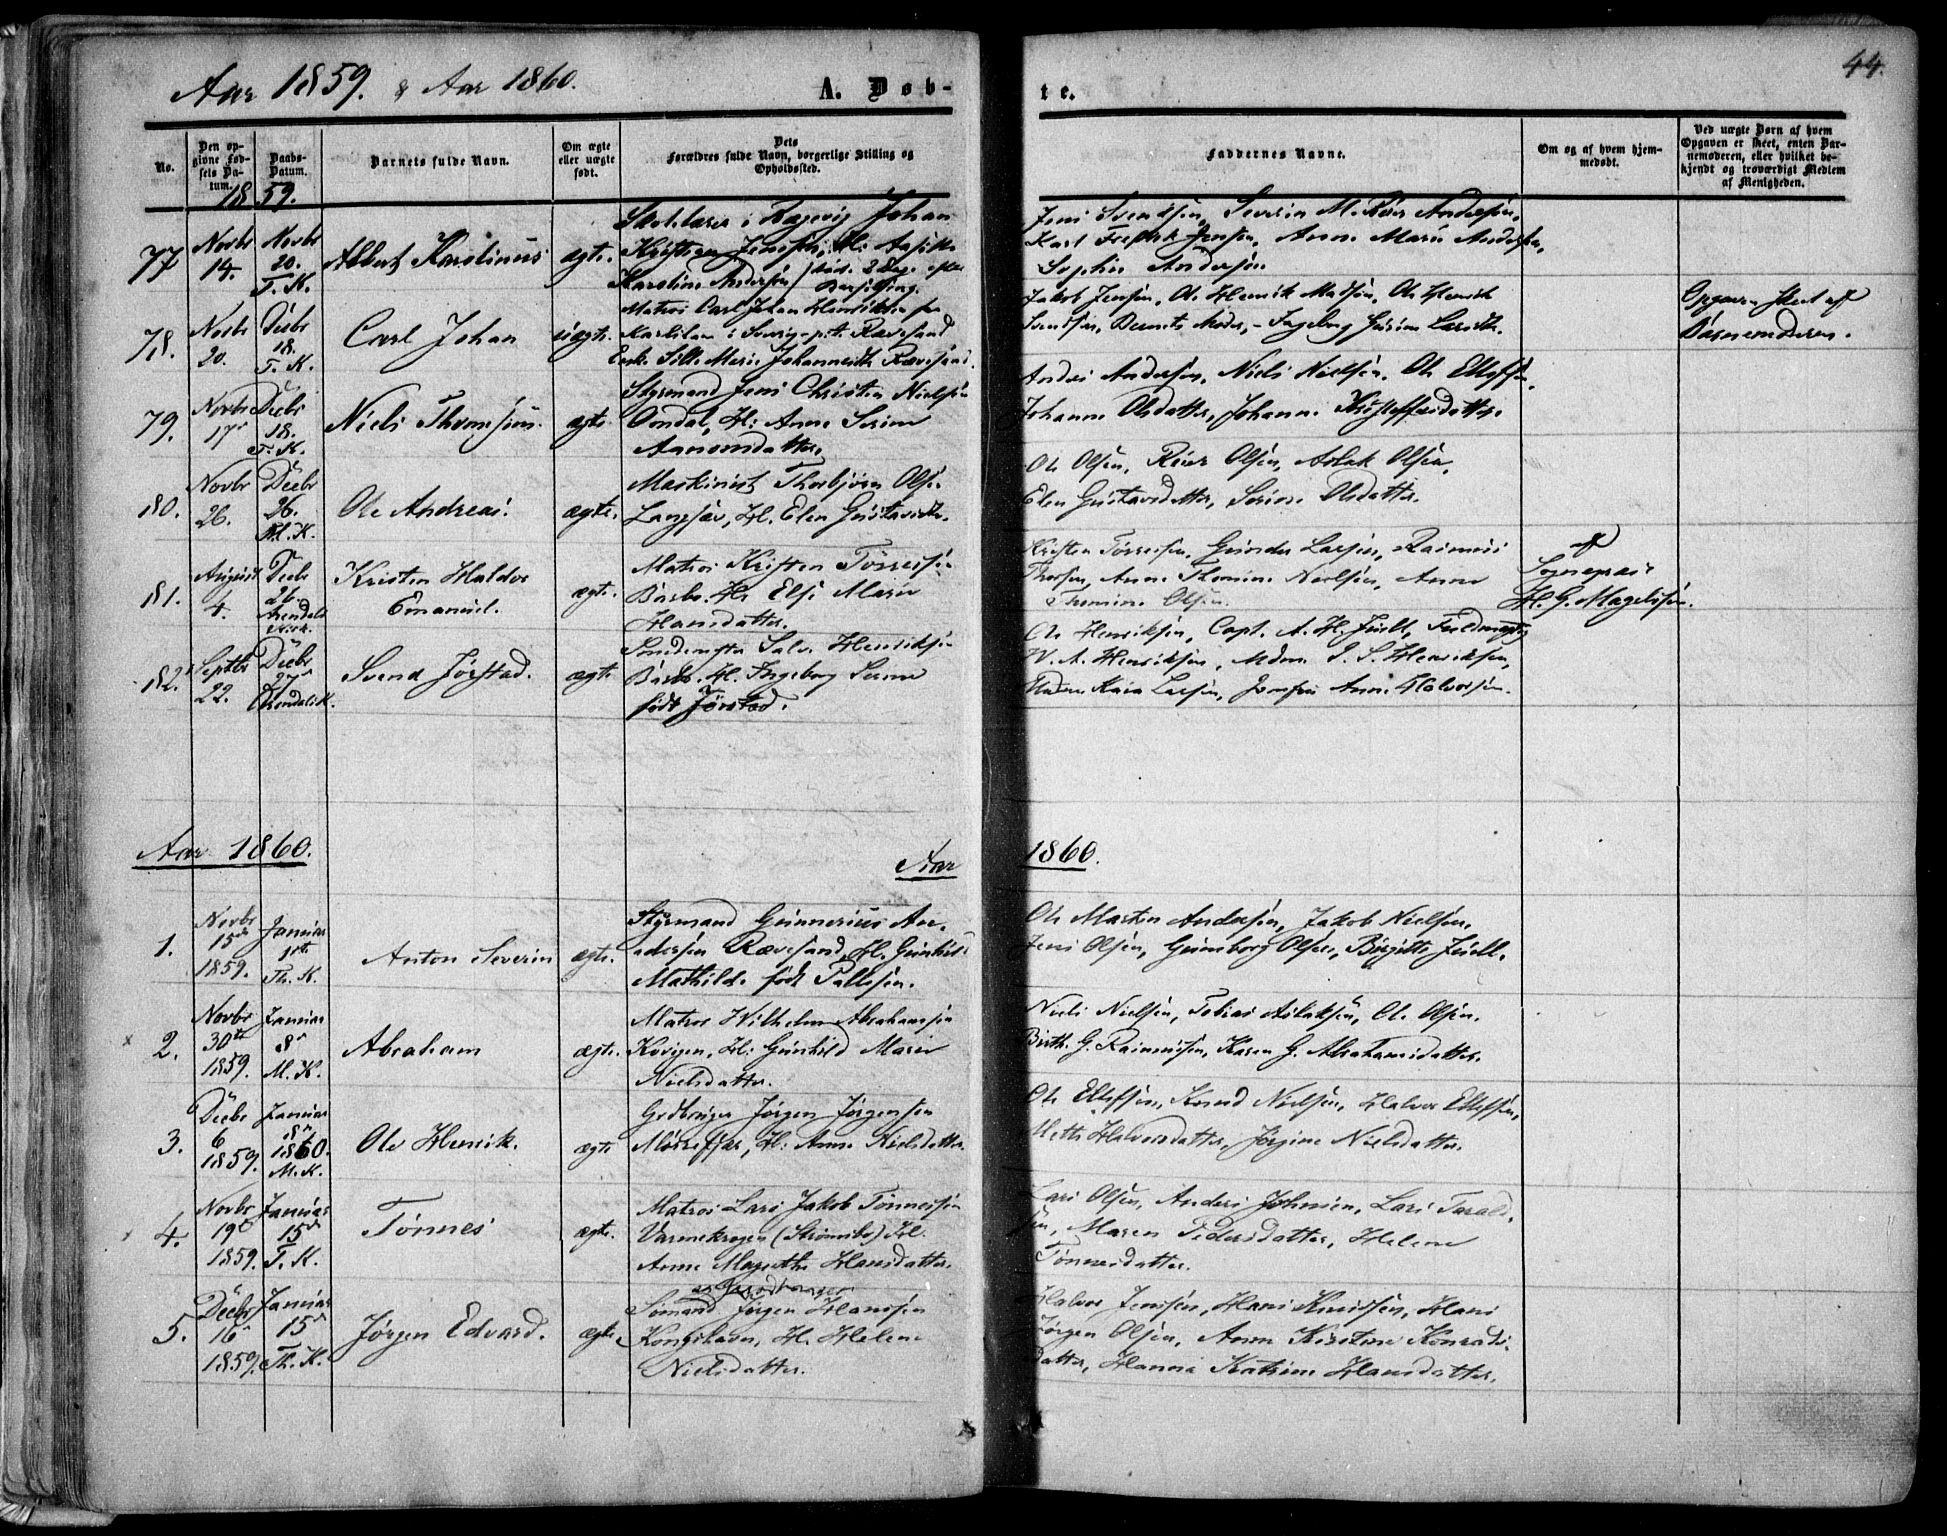 Aar 1859. & Aar 1860.
A. Døb-
te.
44.
No.
Den op-
givne Fød-
sels Da-
tum.
Daabs-
Datum.
Barnets fulde Navn.
Om ægte
eller uægte
født.
Dets
Forældres fulde Navn, borgerlige Stilling og
Opholdssted.
Faddernes Navne.
Om og af hvem hjem-
medøbt.
Ved uægte Børn af hvem
Opgaven er skeet, enten Bar-
nemoderen, eller hvilket be-
kjendt og troværdigt Medlem
af Menigheden.
1859.
77
Novbr
14.
Novbr
20.
T. K.
Albert Karolinus
ægte
Skolelærer i Johan
Kristian Jensen, H:
Karoline Andersen
Jens Svendsen, Severin M. Reier Andersen,
Karl Fredrik Jensen, Anne Marie Andersen,
Sophie Andersen
78.
Novbr
20.
Decbr
18.
T. K.
Carl Johan
uægte.
Matros Carl Johan Henriksen fra
Karlshavn i Sverig p.t. Rævesand
Enke Sille Marie Johannesdtr Rævesand.
Jakob Jensen, Ole Henrik Madsen, Ole Henrik
Svendsen, Barnets Moder, Ingeborg Gurine Larsdtr.
Opgaven skeet af
Barnemoderen.
79.
Novbr
17
Decbr
18.
T. K.
Niels Thomsinus.
ægte
Styrmand Jens Christen Nielsen
Omdal, H: Anne Serine
Aanonsdatter,
Anders Andersen, Niels Nielsen, Ole Ellefsen,
Johanne Olsdatter, Johanne Kristoffersdatter.
80.
Novbr
26.
Decbr
26.
M. K.
Ole Andreas.
ægte.
Maskinist Thorbjørn Olsen
Langsæv, H. Elen Gustavsdtr.
Ole Olsen, Reier Olsen, Aslak Olsen,
Elen Gustavsdatter, Serine Olsdatter.
181.
August
4.
Decbr
26.
Arendals
Kirk.
Kristen Haldor
Emanuel.
ægte.
Matros Kristen Tørresen
Barbo. H. Else Marie
Hansdatter.
Kristen Tørresen, Gunder Larsen, Rasmus
Thorsen, Anne Thomine Nielsen, Anne
Thomine Olsen.
af
Sognepræst
H. G. Magelssen.
182.
Septbr
22.
Decbr
27
Arendals K.
Svend Jørstad.
ægte
Salve Henriksen
Barbo. H. Ingeborg Serine
født Jørstad.
Ole Henriksen, Capt. A. H. Juell, Fuldmægtig
W. A. Henriksen, Mdm. S. Henriksen,
Maren Kaia Larsen, Jomfru Anne Halvorsen.
Aar 1860.
Aar
1860.
1.
Novbr
15de
1859.
Januar
1ste
Th. K.
Anton Severin
ægte.
Styrmand Gunnerius An-
dersen Rævesand, H. Gunhild
Mathilde født Pallesen.
Ole Martin Andersen, Jakob Nielsen,
Jens Olsen, Gunborg Olsen, Birgitte Juell.
2.
Novbr
30te
1859.
Januar
8
M. K.
Abraham
ægte.
Matros Wilhelm Abrahamsen
Kovigen, H: Gunhild Marie
Nielsdatter.
Niels Nielsen, Tobias Aslaksen, Ole Olsen.
Birthe G. Rasmussen, Karen G. Abrahamsdatter.
3.
Decbr
6
1859.
Januar
8
1860.
M. K.
Ole Henrik.
ægte
Grdbruger Jørgen Jørgensen
Mørefjær, H: Anne Nielsdatter.
Ole Ellefsen, Knud Nielsen, Halvor Ellefsen,
Mette Halvorsdatter, Jørgine Nielsdatter.
4.
Novbr
19de
1859.
Januar
15de
T. K.
Tønnes
ægte.
Matros Lars Jakob Tønnessen
Varmekrogen (Strømsbo) H.
Anne Margrethe Hansdatter.
Lars Olsen, Anders Johnsen, Lars Tarald-
sen, Maren Pedersdatter, Helene
Tønnesdatter.
5.
Decbr
16
1859.
Januar
15de
Th. K.
Jørgen Edvard.
ægte
Sømand Jørgen Hanssen
Kongshavn, H. Helene
Nielsdatter.
Halvor Jenssen, Hans Knudsen, Hans
Jørgen Olsen, Anne Kirstine Konrads-
datter, Hanna Katrine Hansdatter.